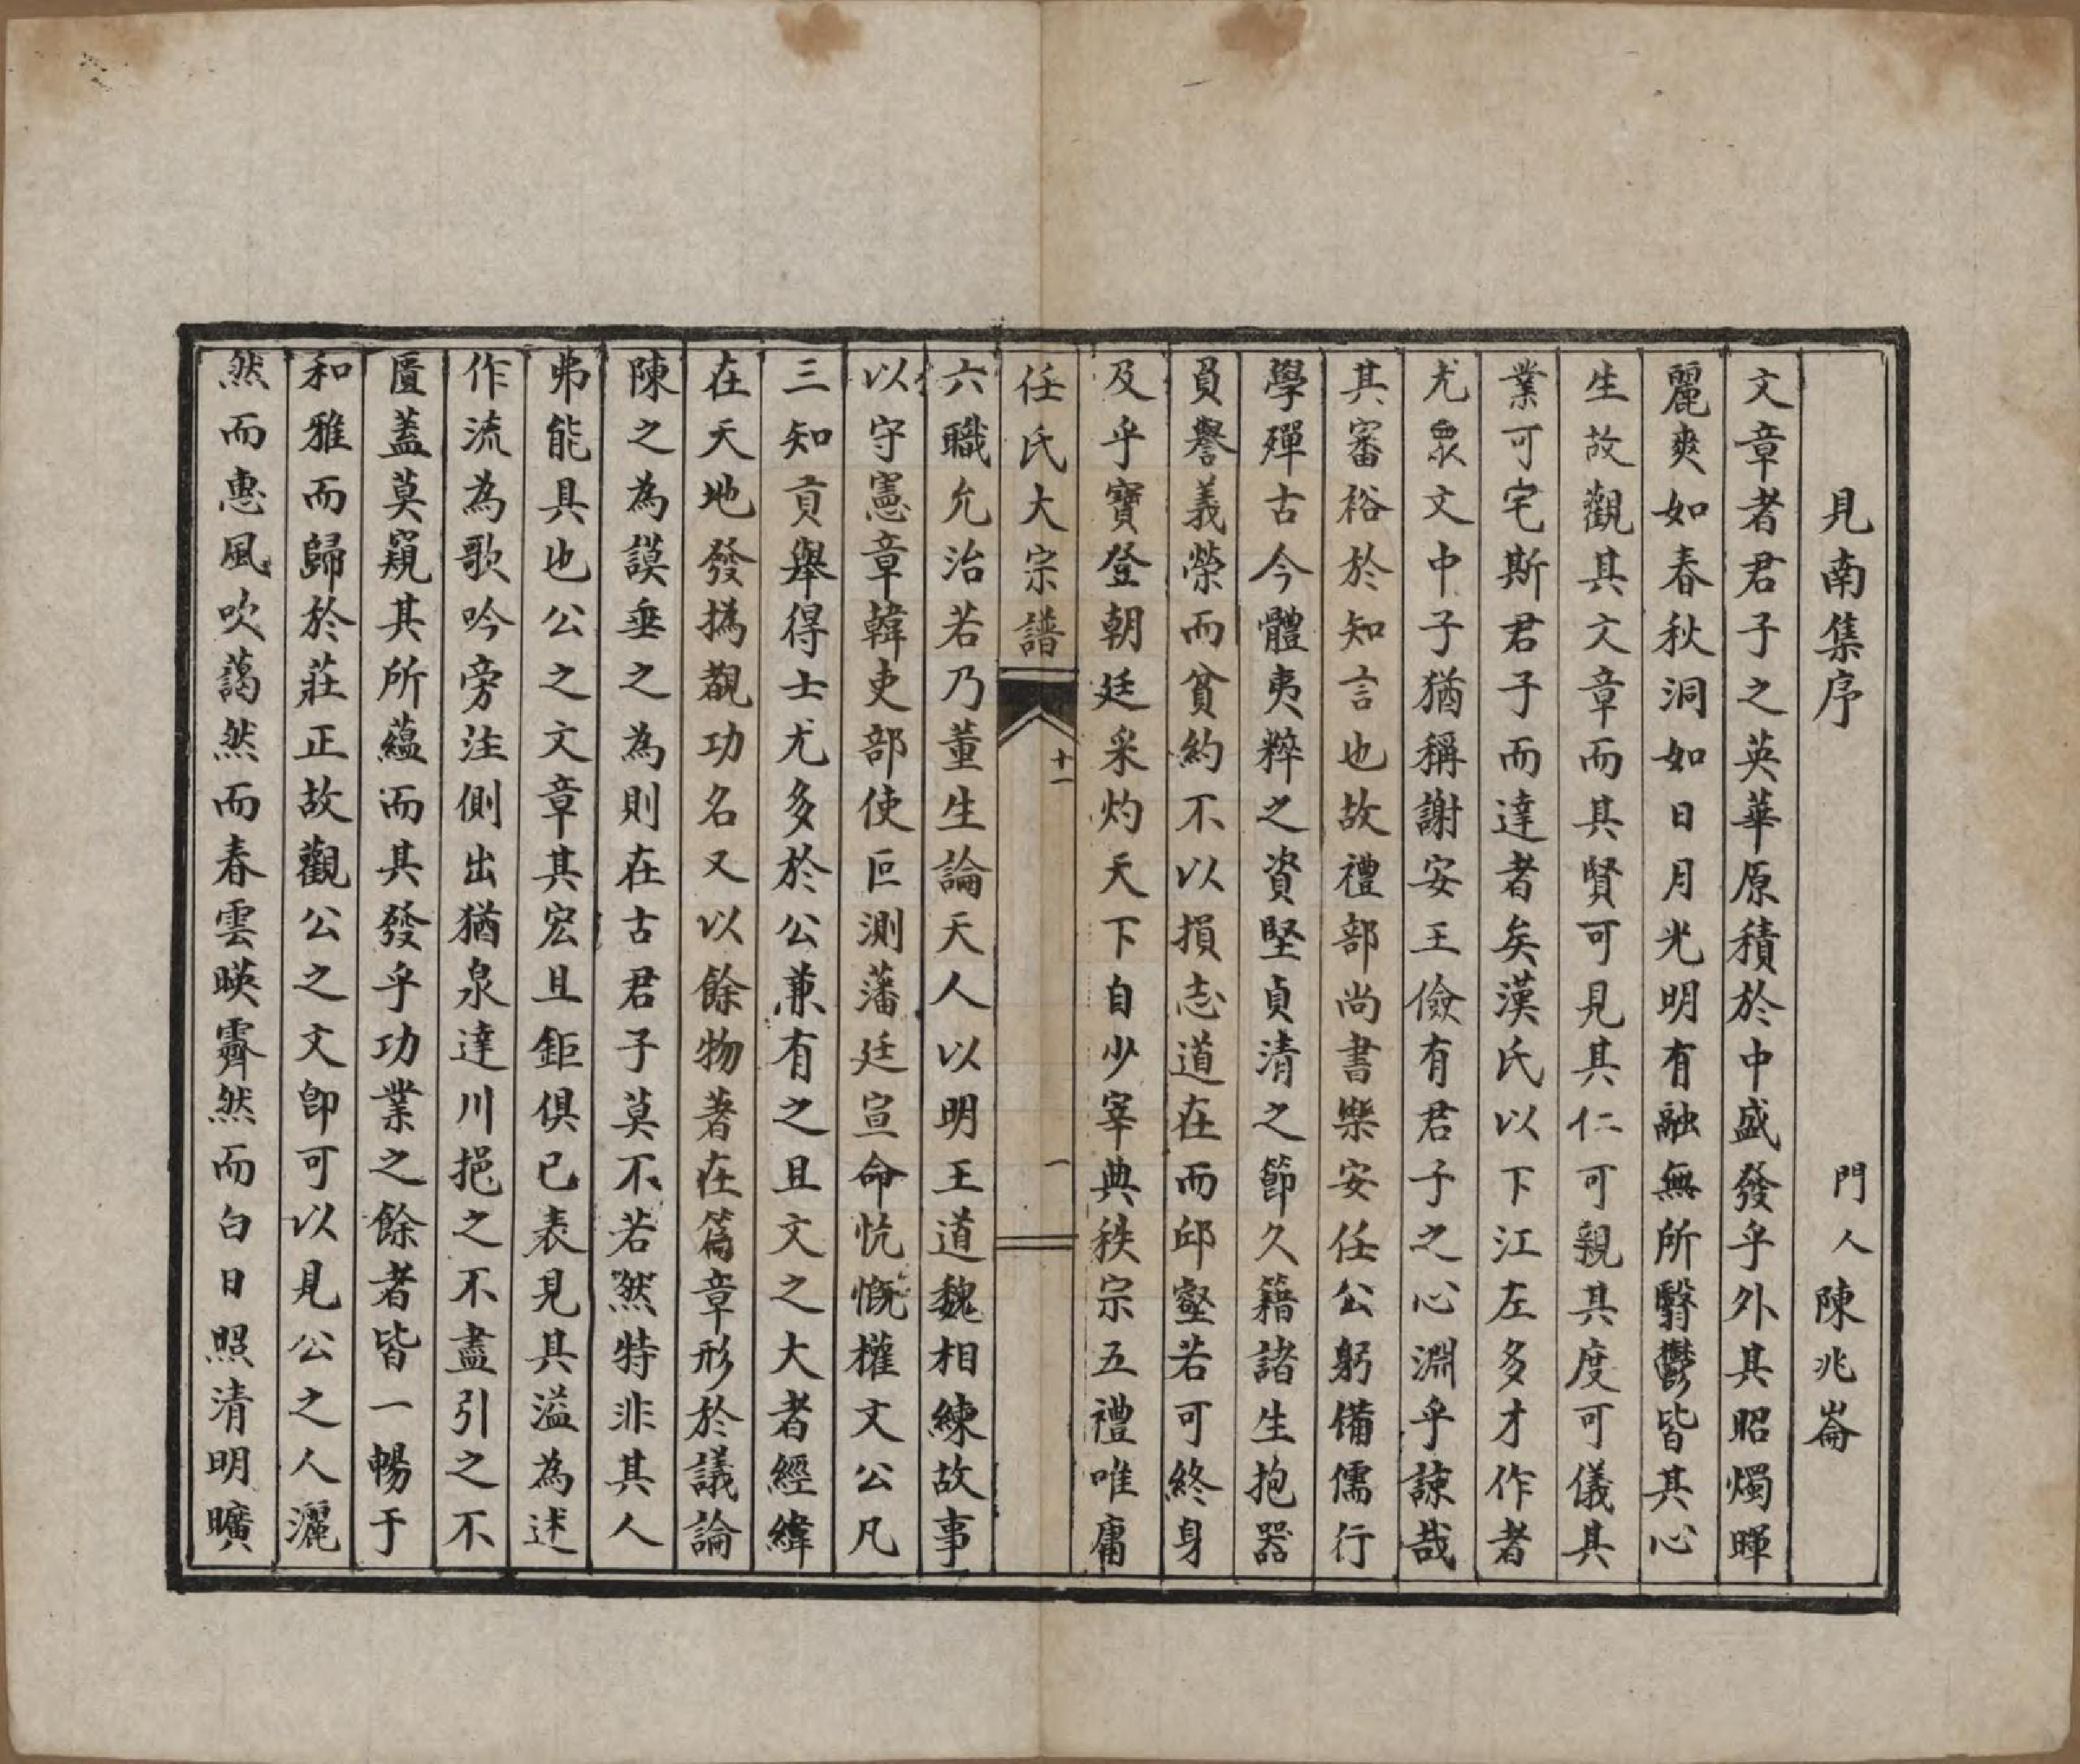 見南集序　門人陳兆崙
文章者君子之英華原積於中盛發乎外其昭燭暉
麗爽如春秋洞如日月光明有融無所翳鬱皆其心
生故觀其文章而其賢可見其仁可親其度可儀其
業可宅斯君子而達者矣漢氏以下江左多才作者
尤眾文中子猶稱謝安王儉有君子之心淵乎諒哉
其審裕於知言也故禮部尚書樂安任公躬備儒行
學殫古今體夷粹之資堅貞清之節久籍諸生抱器
員譽義榮而貧約不以損志道在而邱壑若可終身
及乎寶登朝廷采灼天下自少宰典秩宗五禮唯庸
任氏大宗譜　十一　一
六職允治若乃董生論天人以明王道魏相練故事
以守憲章韓吏部使叵測藩廷宣命忼慨權文公凡
三知貢舉得士尤多於公兼有之且文之大者經緯
在天地發撝觀功名又以餘物著在篇章形於議論
陳之為謨垂之為則在古君子莫不若然特非其人
弗能具也公之文章其宏且鉅俱已表見其溢為述
作流為歌吟旁注側出猶泉達川挹之不盡引之不
匱蓋莫窺其所蘊而其發乎功業之餘者皆一暢于
和雅而歸於莊正故觀公之文卽可以見公之人灑
然而惠風吹藹然而春雲暎霽然而白日照清明曠